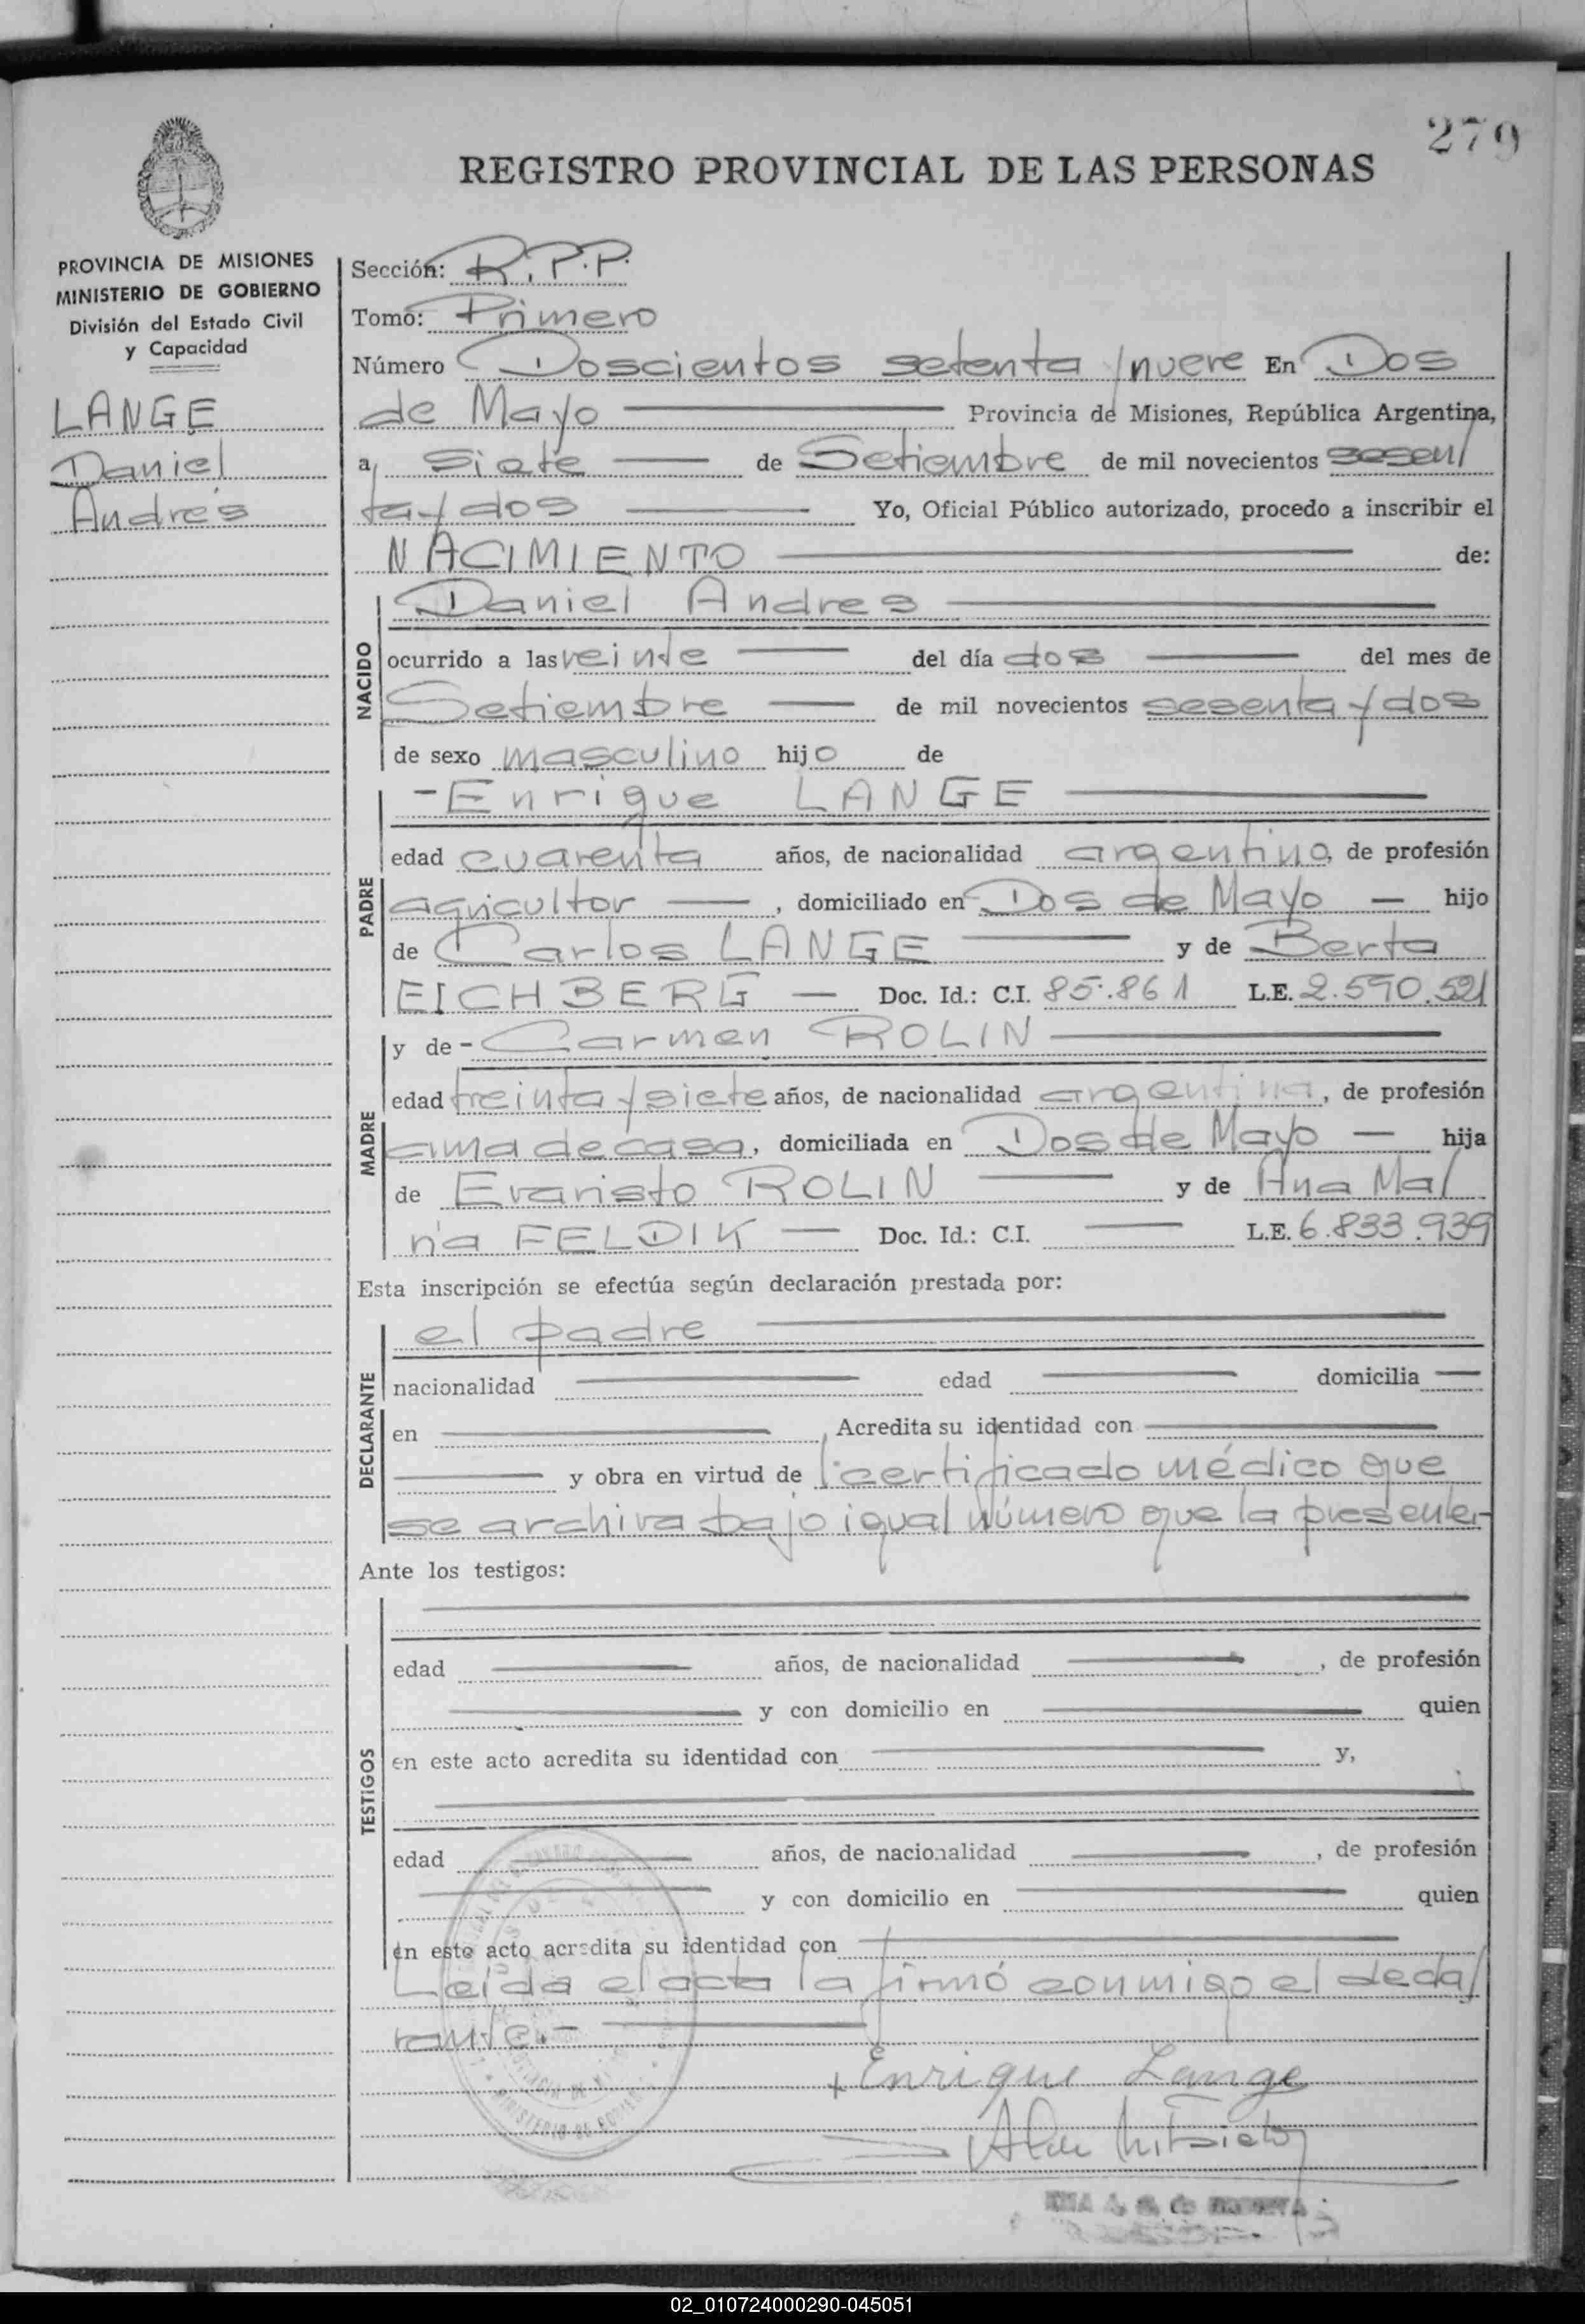 279
REGISTRO PROVINCIAL DE LAS PERSONAS
PROVINCIA DE MISIONES
MINISTERIO DE GOBIERNO
División del Estado Civil
y Capacidad
LANGE
Daniel
Andrés
Sección: R.P.P.
Tomo: Primero
Número Doscientos setenta y nueve En Dos
de Mayo Provincia de Misiones, República Argentina,
a, siete de Setiembre de mil novecientos sesen/
ta y dos Yo, Oficial Público autorizado, procedo a inscribir el
NACIMIENTO de:
NACIDO
Daniel Andres
ocurrido a las veinte del día dos del mes de
Setiembre de mil novecientos sesenta y dos
de sexo masculino hijo de
PADRE
-Enrique LANGE
edad cuarenta años, de nacionalidad argentino, de profesión
agricultor, domiciliado en Dos de Mayo hijo
de Carlos LANGE y de Berta
EICHBERG Doc. Id.: C.I. 85.861 L.E. 2.590.521
MADRE
y de - Carmen ROLIN
edad treinta y siete años, de nacionalidad argentina, de profesión
ama de casa, domiciliada en Dos de Mayo hija
de Evaristo ROLIN y de Ana Ma/
ría FELDIK Doc. Id.: C.I. L.E. 6.833.939
Esta inscripción se efectúa según declaración prestada por:
DECLARANTE
el padre
nacionalidad edad domicilia
en Acredita su identidad con
y obra en virtud de certificado médico que
se archiva bajo igual número que la presente.-
Ante los testigos:
TESTIGOS
edad años, de nacionalidad , de profesión
y con domicilio en quien
en este acto acredita su identidad con y,
edad años, de nacionalidad , de profesión
y con domicilio en quien
en este acto acredita su identidad con
Leída el acta la firmó conmigo el decla/
rante.-
Enrique Lange
MINISTERIO DE GOBIERNO
02_010724000290-045051